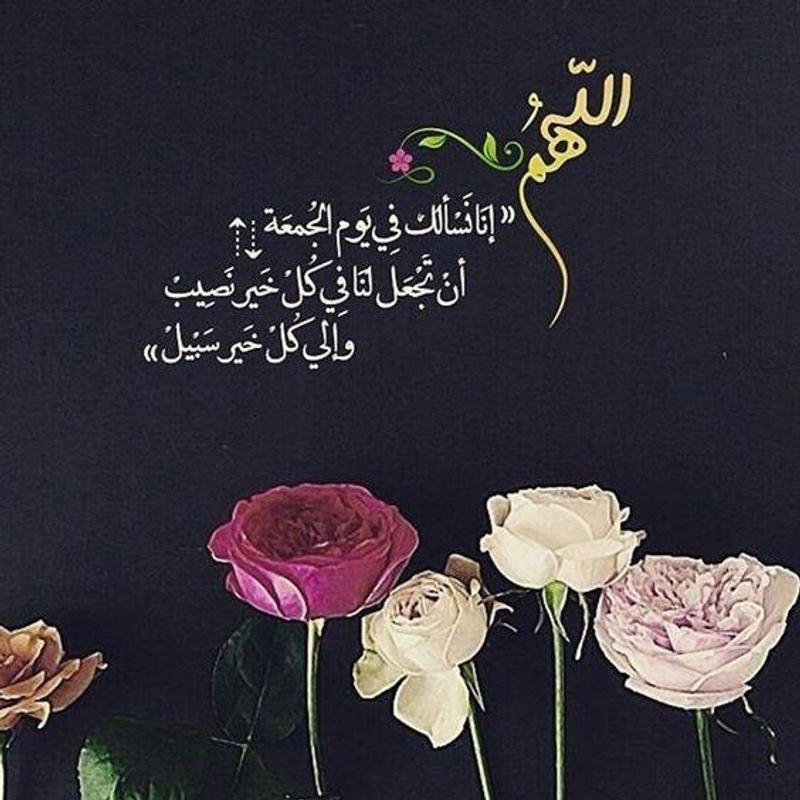 اللّهُم
« إنَا نَسْألكْ فِي يَوم الجُمعَة
أنْ تَجْعَل لنَا فِي كُلْ خَير نَصِيبْ
وإلي كُلْ خَير سَبْيلْ »